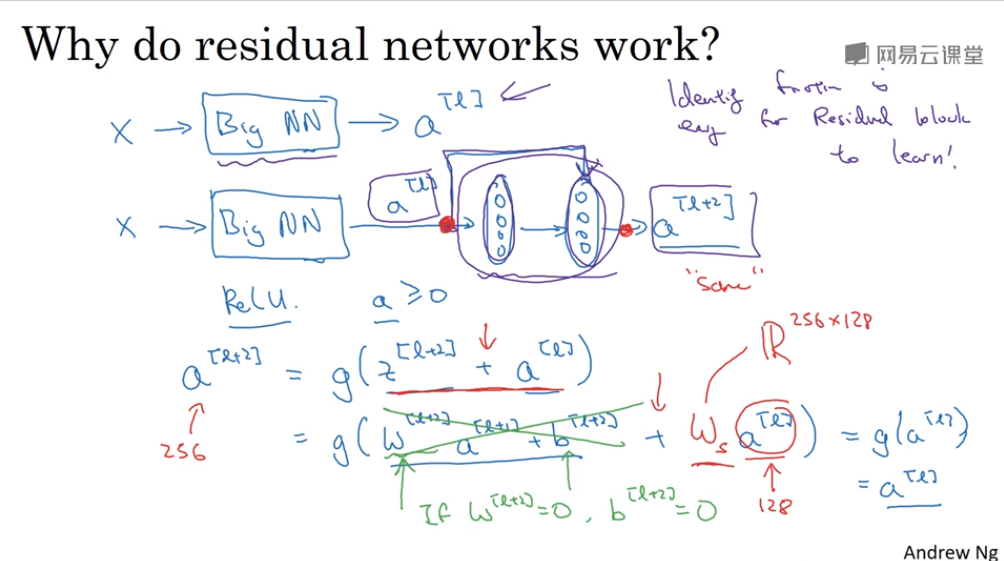 Why do residual networks work?
网易云课堂
Identity function is
easy for Residual block
to learn!
X → Big NN → a^[l]
X → Big NN → a^[l] → → a^[l+2]
"same"
ReLU. a ≥ 0
ℝ^256×128
a^[l+2] = g(z^[l+2] + a^[l])
256
= g(W^[l+2] a^[l+1] + b^[l+2] + W_s a^[l]) = g(a^[l])
= a^[l]
128
If W^[l+2]=0, b^[l+2]=0
Andrew Ng